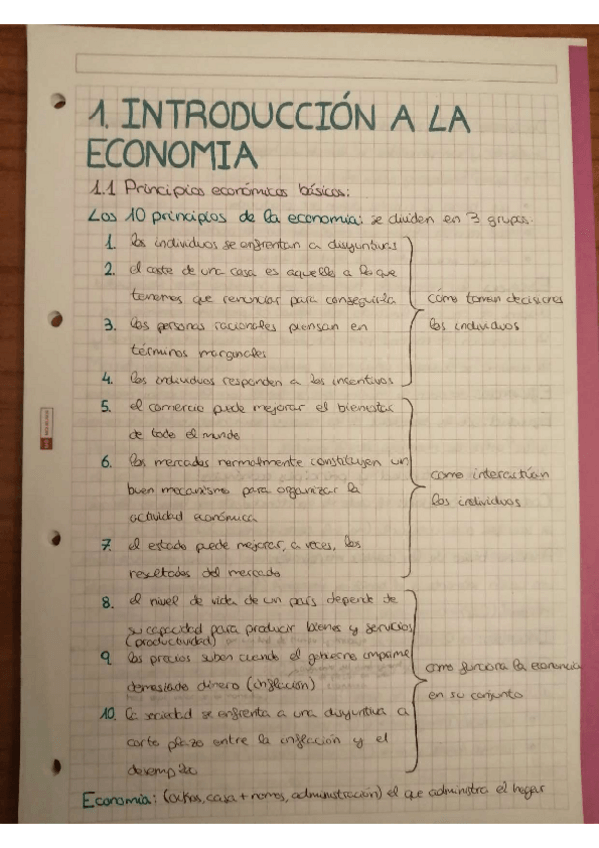 1. INTRODUCCIÓN A LA
ECONOMIA
1.1 Principios económicos básicos:
Los 10 principios de la economia: se dividen en 3 grupos.
1. los individuos se enfrentan a disyuntivas
2. el coste de una cosa es aquello a lo que
tenemos que renunciar para conseguirla
3. las personas racionales piensan en
términos marginales
4. los individuos responden a los incentivos
cómo toman decisiones
los individuos
5. el comercio puede mejorar el bienestar
de todo el mundo
6. los mercados normalmente constituyen un
buen mecanismo para organizar la
actividad económica
7. el estado puede mejorar, a veces, los
resultados del mercado
como interactúan
los individuos
8. el nivel de vida de un país depende de
su capacidad para producir bienes y servicios
(productividad)
9. los precios suben cuando el gobierno imprime
demasiado dinero (inflación)
10. la sociedad se enfrenta a una disyuntiva a
corto plazo entre la inflación y el
desempleo
como funciona la economia
en su conjunto
Economia: (oikos, casa + nomos, administración) el que administra el hogar